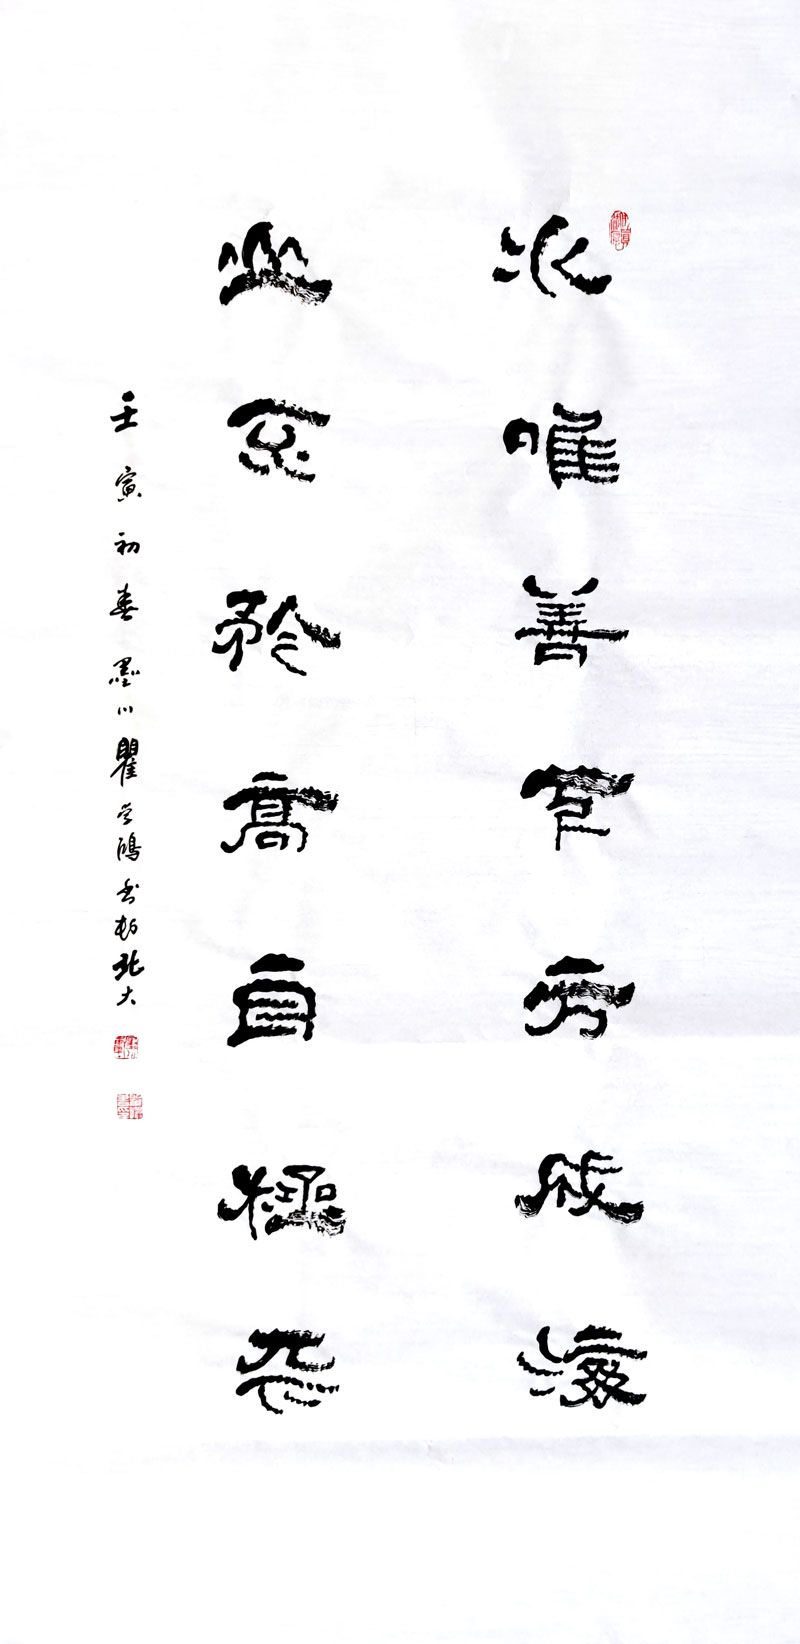 水唯善下方成海
山不矜高自極天
壬寅初春墨川瞿学鴻书於北大